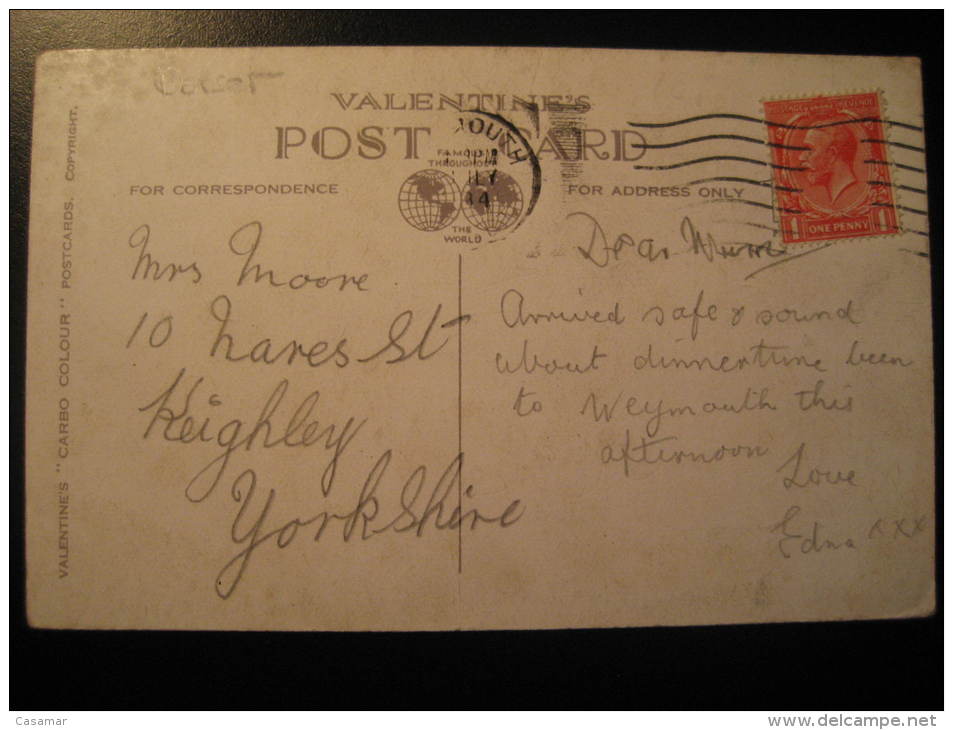 VALENTINE'S
POST CARD
FAMOUS
THROUGHOUT
THE
WORLD
FOR CORRESPONDENCE
FOR ADDRESS ONLY
VALENTINE'S "CARBO COLOUR" POSTCARDS. COPYRIGHT.
OUTH
PM
LY
34
POSTAGE REVENUE
1 ONE PENNY 1
Mrs Moore
10 Nares St
Keighley
Yorkshire
Dear Mum
Arrived safe & sound
about dinnertime been
to Weymouth this
afternoon
Love
Edna xxx
Casamar
www.delcampe.net